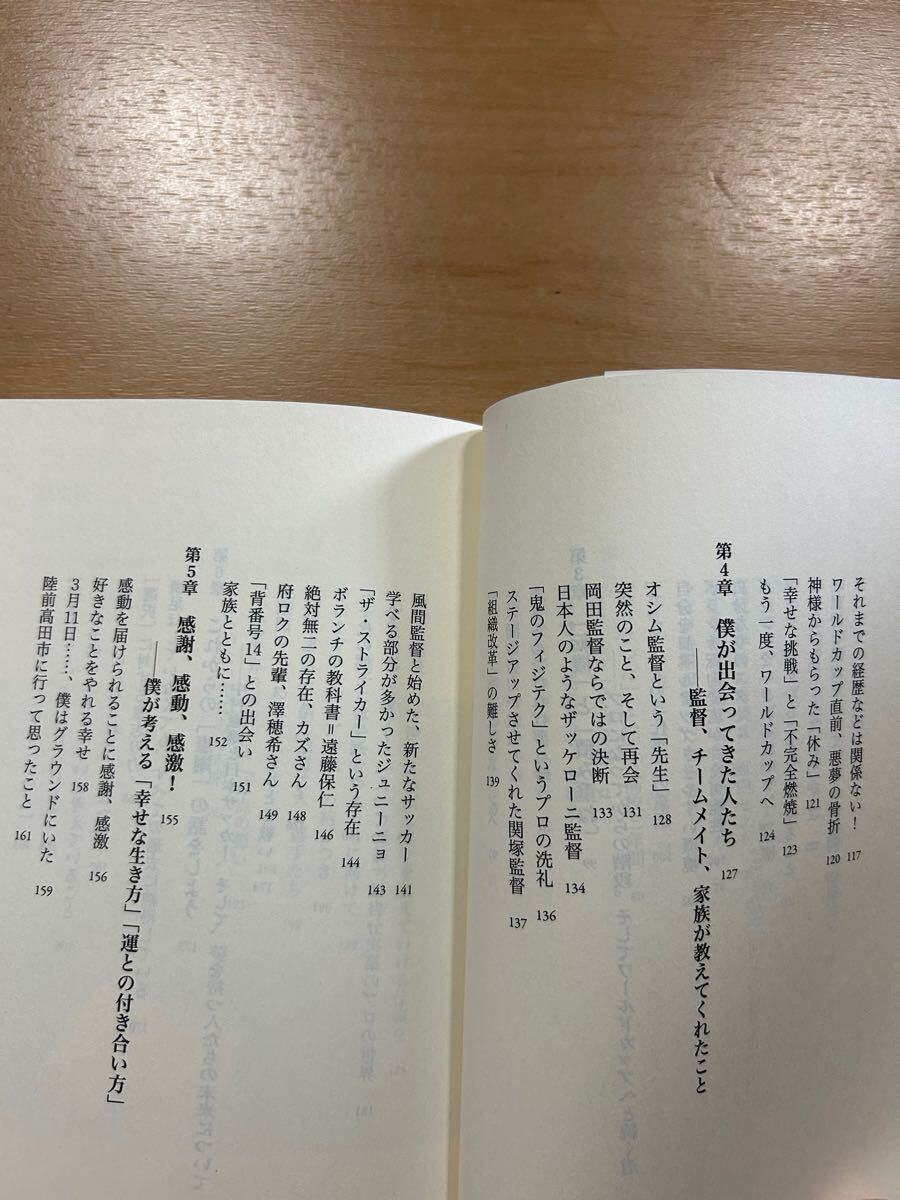 それまでの経歴などは関係ない! 117
ワールドカップ直前、悪夢の骨折 120
神様からもらった「休み」 121
「幸せな挑戦」と「不完全燃焼」 123
もう一度、ワールドカップへ 124
第4章 僕が出会ってきた人たち 127
――監督、チームメイト、家族が教えてくれたこと
オシム監督という「先生」 128
突然のこと、そして再会 131
岡田監督ならではの決断 133
日本人のようなザッケローニ監督 134
「鬼のフィジテク」というプロの洗礼 136
ステージアップさせてくれた関塚監督 137
「組織改革」の難しさ 139
風間監督と始めた、新たなサッカー 141
学べる部分が多かったジュニーニョ 143
「ザ・ストライカー」という存在 144
ボランチの教科書=遠藤保仁 146
絶対無二の存在、カズさん 148
府ロクの先輩、澤穂希さん 149
「背番号14」との出会い 151
家族とともに…… 152
第5章 感謝、感動、感激! 155
――僕が考える「幸せな生き方」「運との付き合い方」
感動を届けられることに感謝、感激 156
好きなことをやれる幸せ 158
3月11日……、僕はグラウンドにいた 159
陸前高田市に行って思ったこと 161